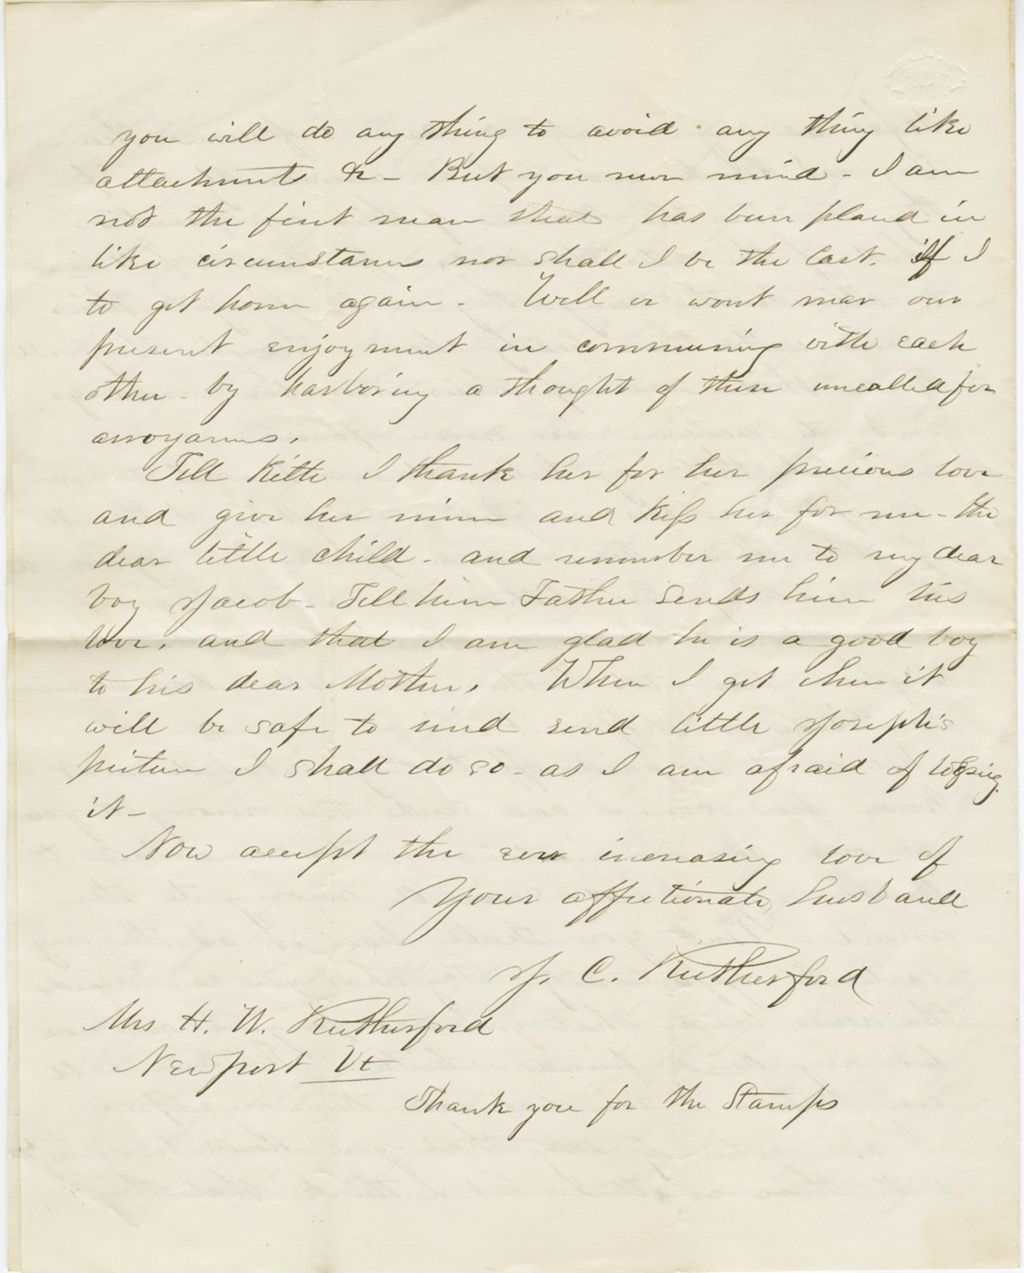 you will do any thing to avoid any thing like
attachment &c - But you never mind - I am
not the first man that has been placed in
like circumstances nor shall I be the last. if I
to get home again - Well we wont mar our
present enjoyment in communing with each
other - by harboring a thought of these uncalled for
annoyances.
Tell Kitte I thank her for her precious love
and give her mine and Kiss her for me - the
dear little child - and remember me to my dear
boy Jacob - Tell him Father sends him his
love, and that I am glad he is a good boy
to his dear Mother. When I get where it
will be safe to send little Joseph's
picture I shall do so - as I am afraid of loosing
it -
Now accept the ever increasing love of
Your affectionate husband
J. C. Rutherford
Mrs H. W. Rutherford
Newport Vt
Thank you for the Stamps